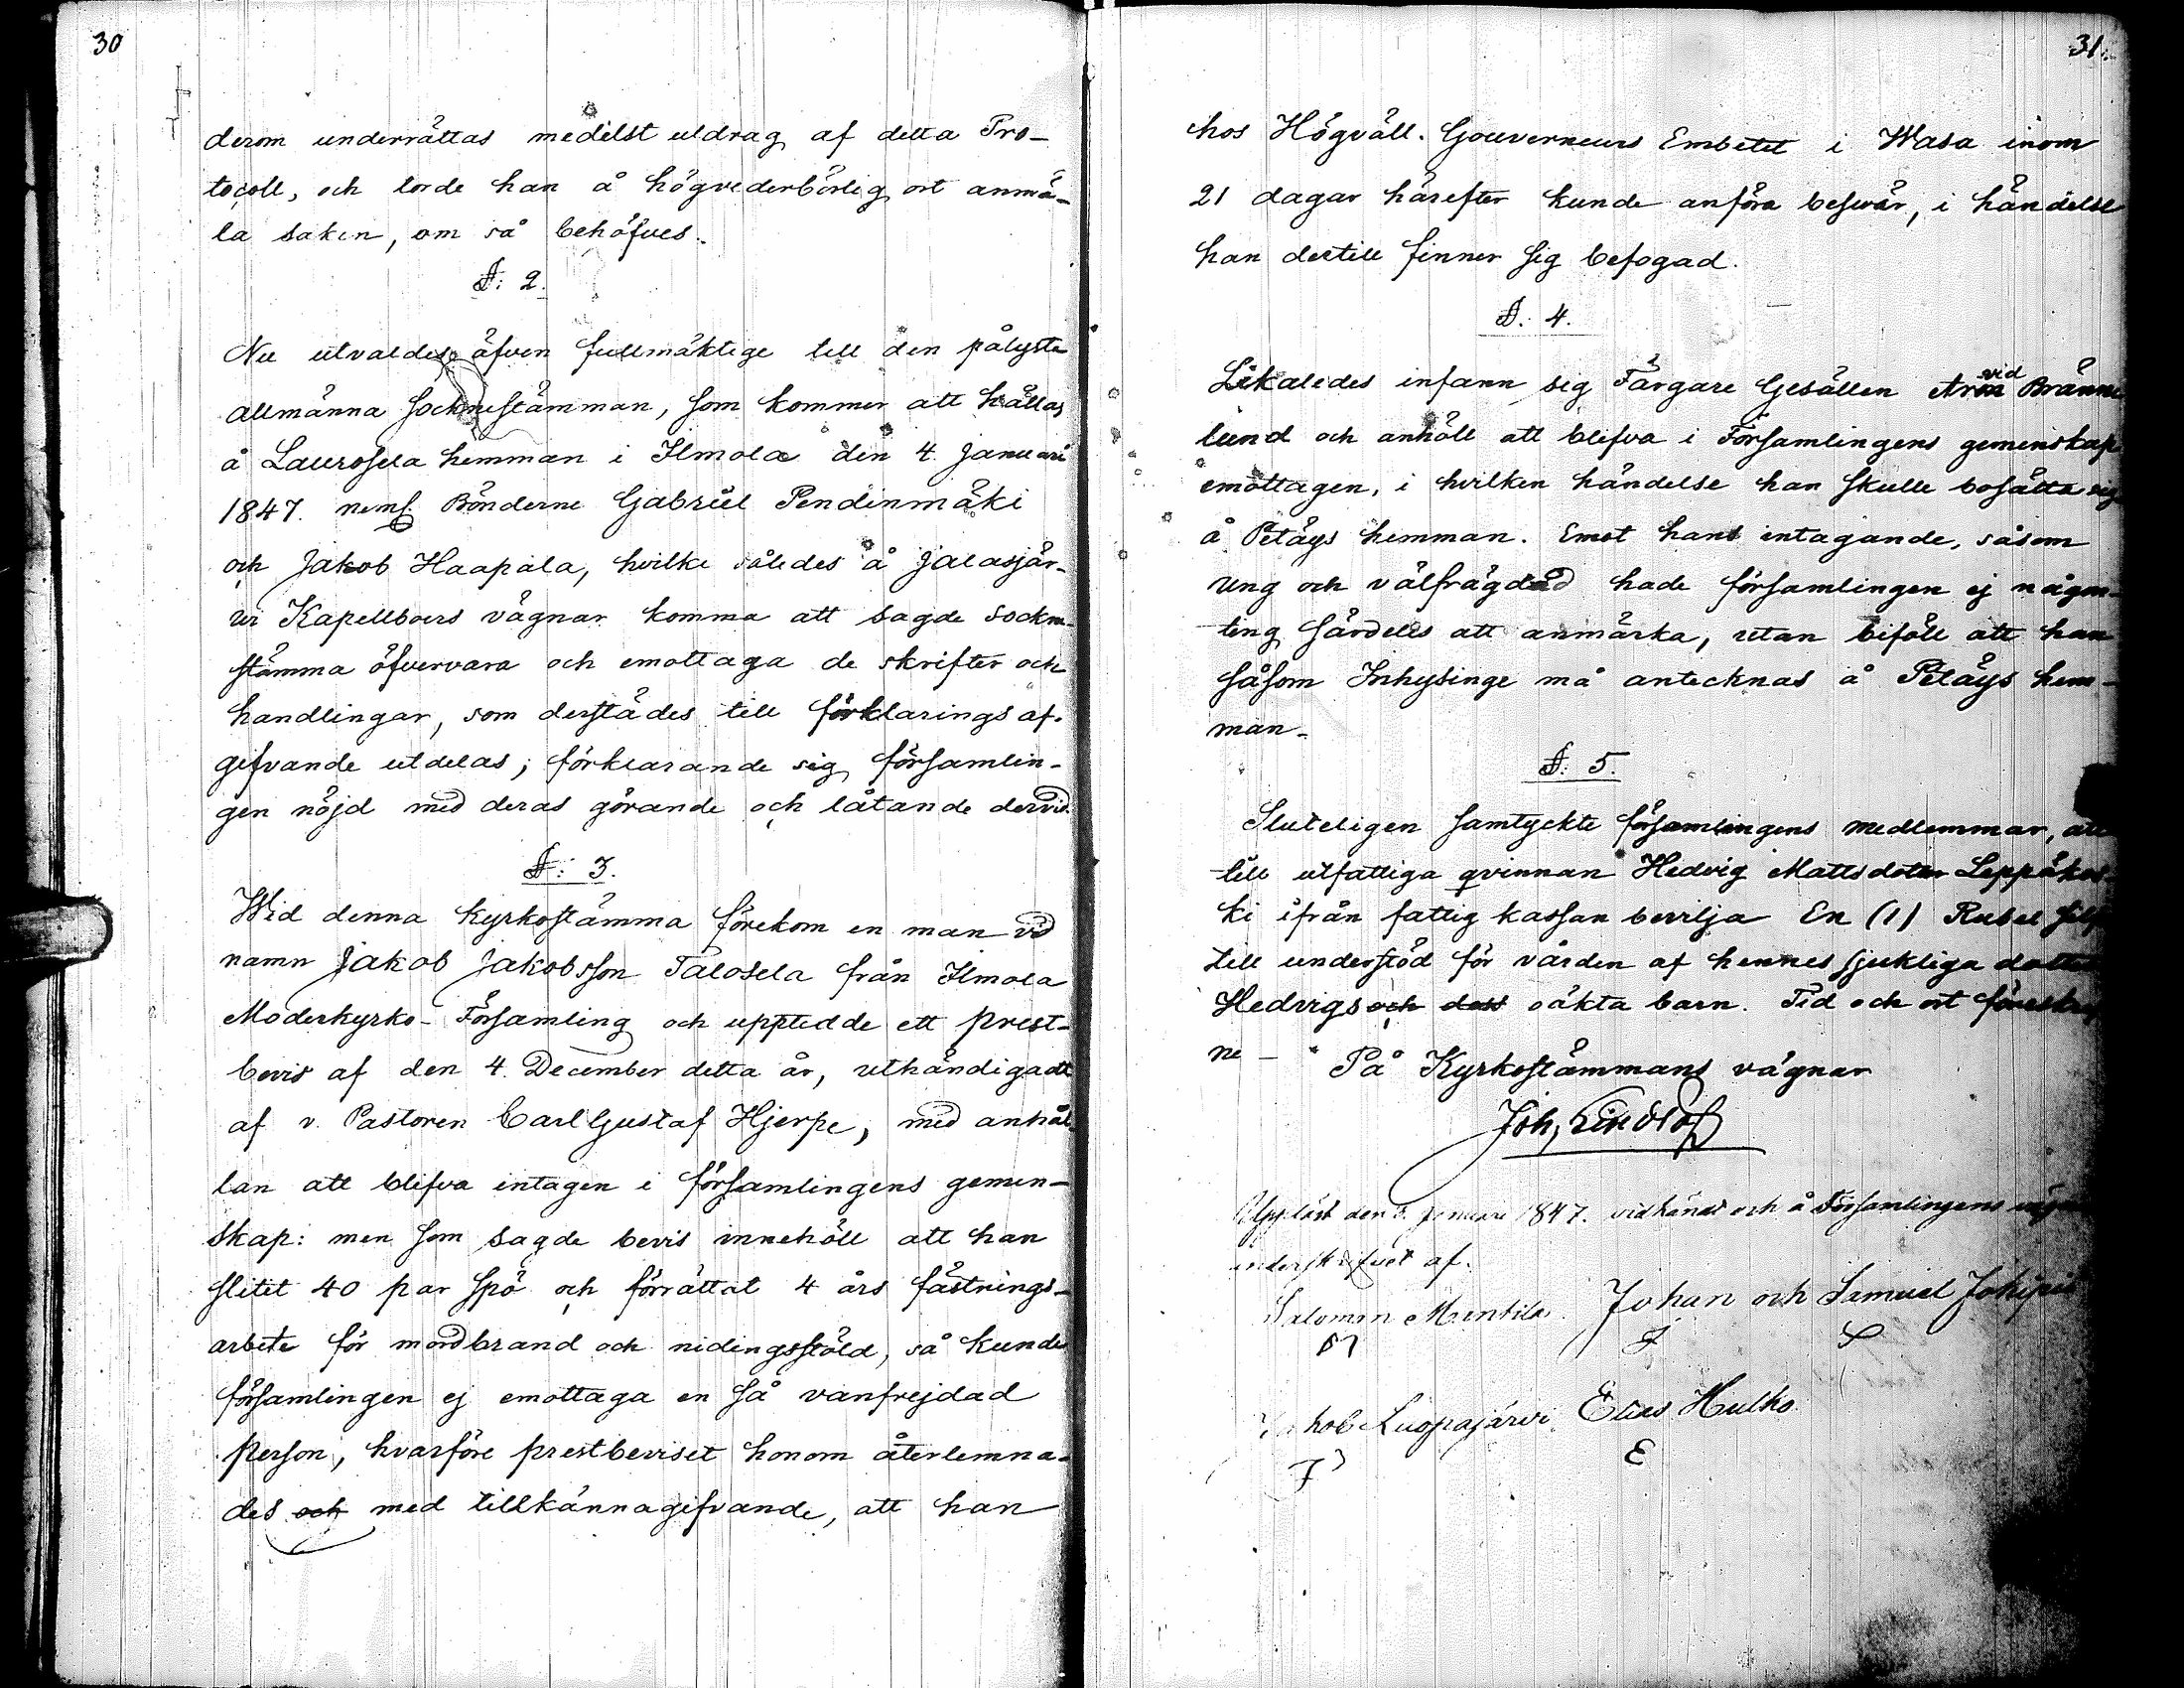 30
derom underrättas medelst utdrag af detta Pro-
tocoll, och torde han å högvederbörlig ort anmä-
la saken, om så behöfves.
§: 2.
Nu utvaldes äfven fullmäktige till den pålysta
allmänna Socknestämman, som kommer att hållas
å Laurosela hemman i Ilmola den 4 Januari
1847. neml. Bönderne Gabriel Pendinmäki
och Jakob Haapala, hvilke således å Jalasjär-
vi Kapellboers vägnar komma att sagde sockne-
stämma öfvervara och emottaga de skrifter och
handlingar, som derstädes till förklarings af-
gifvande utdelas; förklarande sig församlin-
gen nöjd med deras görande och låtande dervid.
§: 3.
Wid denna Kyrkostämma förekom en man vid
namn Jakob Jakobsson Talosela från Ilmola
Moderkyrko-Församling och upptedde ett prest-
bevis af den 4. December detta år, uthändigadt
af v. Pastoren Carl Gustaf Hjerpe, med anhål-
lan att blifva intagen i församlingens gemen-
skap: men som sagde bevis innehöll att han
slitet 40 par spö och förrättat 4 års fästnings-
arbete för mordbrand och nidingsstöld, så kunde
församlingen ej emottaga en så vanfrejdad
person, hvarföre prestbeviset honom återlemna-
des och med tillkännagifvande, att han
31.
hos Högväll. Gouverneurs Embetet i Wasa inom
21 dagar härefter kunde anföra besvär, i händelse
han dertill finner sig befogad.
§: 4.
Likaledes infann sig Färgare Gesällen Arvid Bränne
lund och anhöll att blifva i Församlingens gemenskap
emottagen, i hvilken händelse han skulle bosätta sig
å Petäys hemman. Emot hans intagande, såsom
ung och välfrägdad hade församlingen ej någon-
ting särdeles att anmärka, utan biföll att han
såsom Inhysinge må antecknas å Petäys hem-
man.
§: 5.
Sluteligen samtyckte församlingens medlemmar, att
till utfattiga qvinnan Hedvig Mattsdoter Leppäkos-
ki ifrån fattig kassan bevilja En (1) Rubel Silf
till understöd för vården af hennes sjukliga dotter
Hedvigs och dess oäkta barn. Tid och ort föreskrif
ne - På Kyrkostämmans vägnar
Joh, Lindlöf
Uppläst den Januari 1847. vidkänd och å Församlingens vägnar
underskrifvet af.
Salomon Mantila. Johan och Samuel Jokipii
SM J S
Jakob Luopajärvi Elias Hulko.
J E